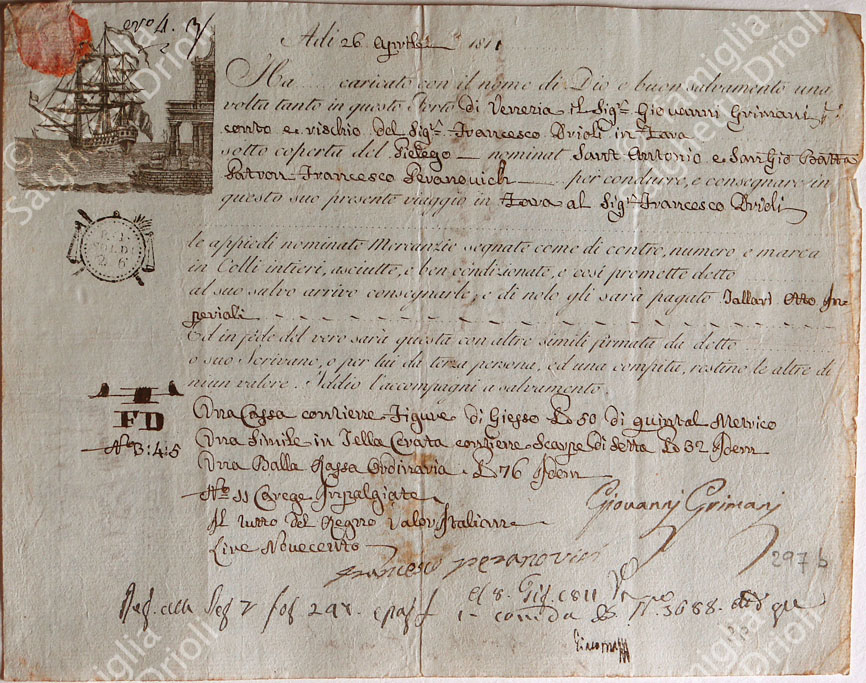 Adi 26 Aprile 1811
Ha caricato con il nome di Dio e buon salvamento una
volta tanto in questo Porto di Venezia il Sigr. Giovanni Grimani pr.
conto e rischio del Sigr. Francesco Drioli in Zara
sotto coperta del Pielego nominat Sant Antonio e San Gio Batta
Patron Francesco Peranovich per condurre, e consegnare in
questo suo presente viaggio in Zara al Sigr. Francesco Drioli
le appiedi nominate Mercanzie segnate come di contro, numero e marca
in Colli intieri, asciutte, e ben condizionate, e così promette detto
al suo salvo arrivo consegnarle; e di nolo gli sarà pagato Tallari Otto Im-
periali
Ed in fede del vero sarà questa con altre simili firmata da detto
o suo Scrivano, o per lui da terza persona, ed una compita, restino le altre di
niun valore. Iddio l'accompagni a salvamento.
FD
No. 3:4:5
Una Cassa contiene Figure di Giesso 50 di quintal Metrico
Una Simile in Tella Cerata contiene Scarpe di Setta 32 Idem
Una Balla Rassa Ordinaria 76 Idem
No. 11 Carege Impalgiate
Il tutto del Regno Valor Italiane
Live Novecento
Giovanni Grimani
Francesco Peranovich
297 b
298
1811
No. 3688
Giacomo
© Saighetti Famiglia
Drioli